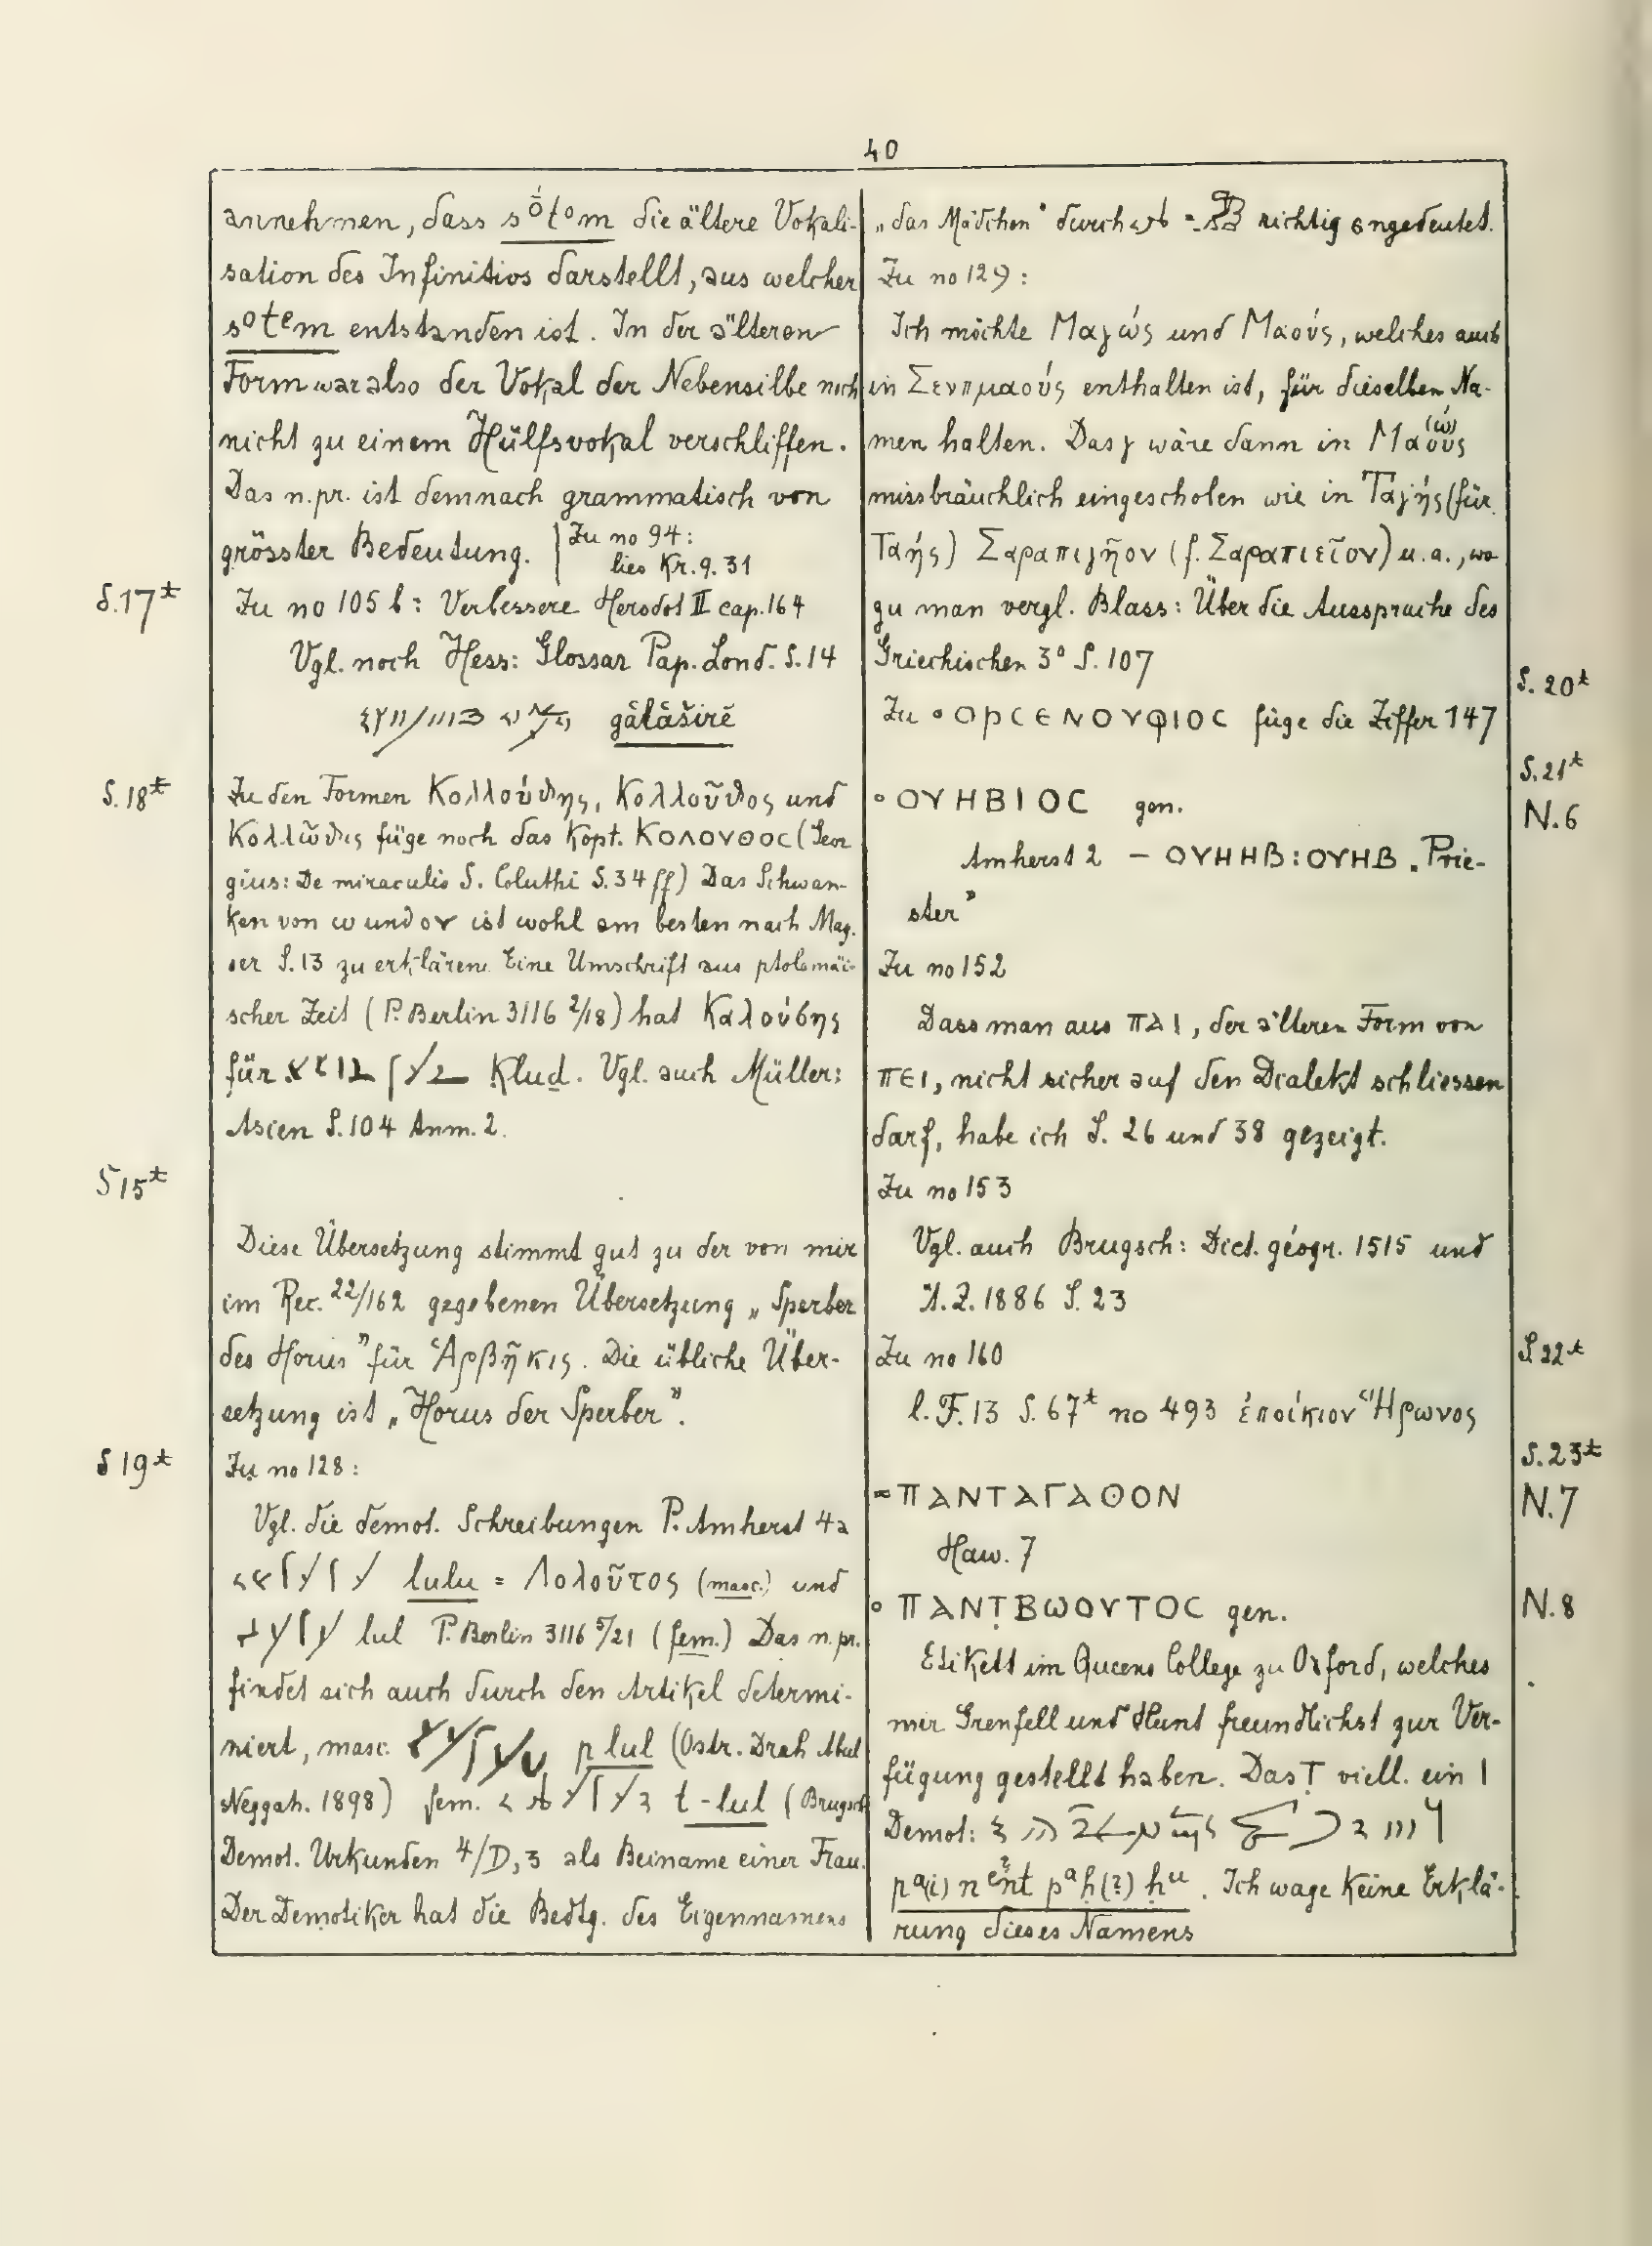 40
annehmen, dass sṓtom die ältere Vokali-
sation des Infinitivs darstellt, aus welcher
sotem entstanden ist. In der älteren
Form war also der Vokal der Nebensilbe noch
nicht zu einem Hülfsvokal verschliffen.
Das n.pr. ist demnach grammatisch von
grösster Bedeutung.
Zu no 94:
lies Kr. 9. 31
S.17t
Zu no 105 b: Verbessere Herodot II cap. 164
Vgl. noch Hess: Glossar Pap. Lond. S. 14
gălāširĕ
S.18t
Zu den Formen Κολλούθης, Κολλοῦθος und
Κολλῶθις füge noch das kopt. ΚΟΛΟΥΘΟC (Geor
gius: De miraculis S. Coluthi S. 34 ff) Das Schwan-
ken von ω und ου ist wohl am besten nach May-
ser S. 13 zu erklären. Eine Umschrift aus ptolemäi-
scher Zeit (P. Berlin 3116 2/18) hat Καλούδης
für Klud. Vgl. auch Müller:
Asien S. 104 Anm. 2.
S 15t
Diese Übersetzung stimmt gut zu der von mir
im Rec. 22/162 gegebenen Übersetzung „Sperber
des Horus” für Ἁρβῆκις. Die übliche Über-
setzung ist „Horus der Sperber”.
S 19t
Zu no 128:
Vgl. die demot. Schreibungen P. Amherst 4a
lulu = Λολοῦτος (masc.) und
lul P. Berlin 3116 5/21 (fem.) Das n. pr.
findet sich auch durch den Artikel determi-
niert, masc. p lul (Ostr. Drah Abul
Neggah. 1898) fem. t-lul (Brugsch
Demot. Urkunden 4/D,3 als Beiname einer Frau.
Der Demotiker hat die Bedtg. des Eigennamens
„das Mädchen” durch = richtig angedeutet.
Zu no 129:
Ich möchte Μαγώς und Μαούς, welches auch
in Σενπμαούς enthalten ist, für dieselben Na-
men halten. Das γ wäre dann in Μαούς (ώ)
missbräuchlich eingeschoben wie in Ταγής (für
Ταής) Σαραπιγῆον (f. Σαραπιεῖον) u. a., wo
zu man vergl. Blass: Über die Aussprache des
Griechischen 3º S. 107
S. 20t
Zu ∘ΟΡCЄΝΟΥΦΙΟC füge die Ziffer 147
S. 21t
∘ΟΥΗΒΙΟC gen.
N. 6
Amherst 2 – ΟΥΗΗΒ : ΟΥΗΒ „Prie-
ster”
Zu no 152
Dass man aus ΠΑΙ, der älteren Form von
ΠЄΙ, nicht sicher auf den Dialekt schliessen
darf, habe ich S. 26 und 38 gezeigt.
Zu no 153
Vgl. auch Brugsch: Dict. géogr. 1515 und
Ä.Z. 1886 S. 23
Zu no 160
S 22t
l. F. 13 S. 67t no 493 ἐποίκιον Ἥρωνος
S. 23t
=ΠΑΝΤΑΓΑΘΟΝ
N. 7
Haw. 7
∘ΠΑΝṬΒѠΟΥΤΟC gen.
N. 8
Etikett im Queens College zu Oxford, welches
mir Grenfell und Hunt freundlichst zur Ver-
fügung gestellt haben. Das Ṭ viell. ein Ι
Demot:
pa(i) n ent paḥ(?) ḥu. Ich wage keine Erklä-
rung dieses Namens